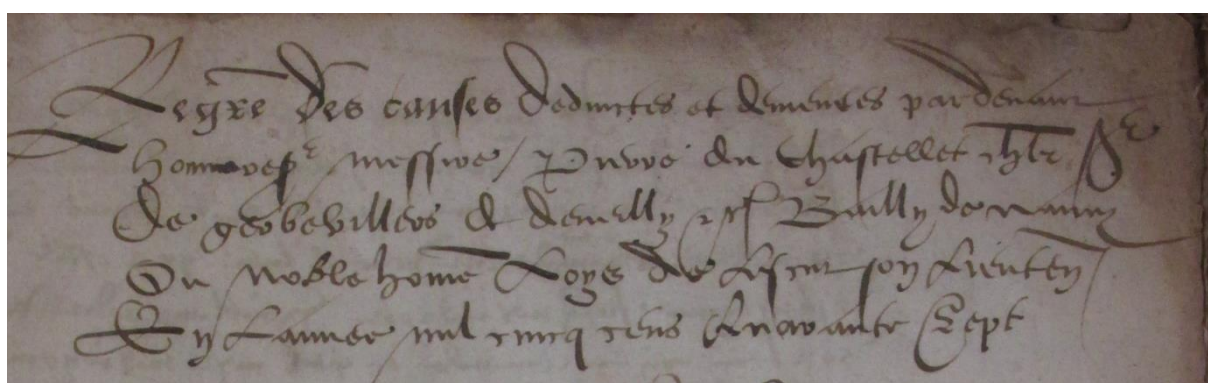 Regre des causes deduictes et demenees pardevant
honnore sr messire Pierre du Chastellet chlr sr
De gerbevillers et deuilly &c Bailly de nancy
Ou Noble home Loys de Lescut son Lieuten
En Lannee mil cincq cens Cinquante Sept